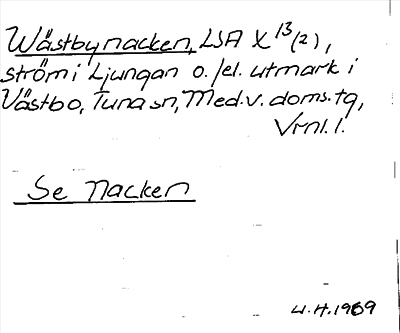 Wästbynacken, LSA X 13/(2),
ström i Ljungan o./el. utmark i
Västbo, Tuna sn, Med.v. doms.tg,
Vrnl. l.
Se Nacken
W.H. 1969